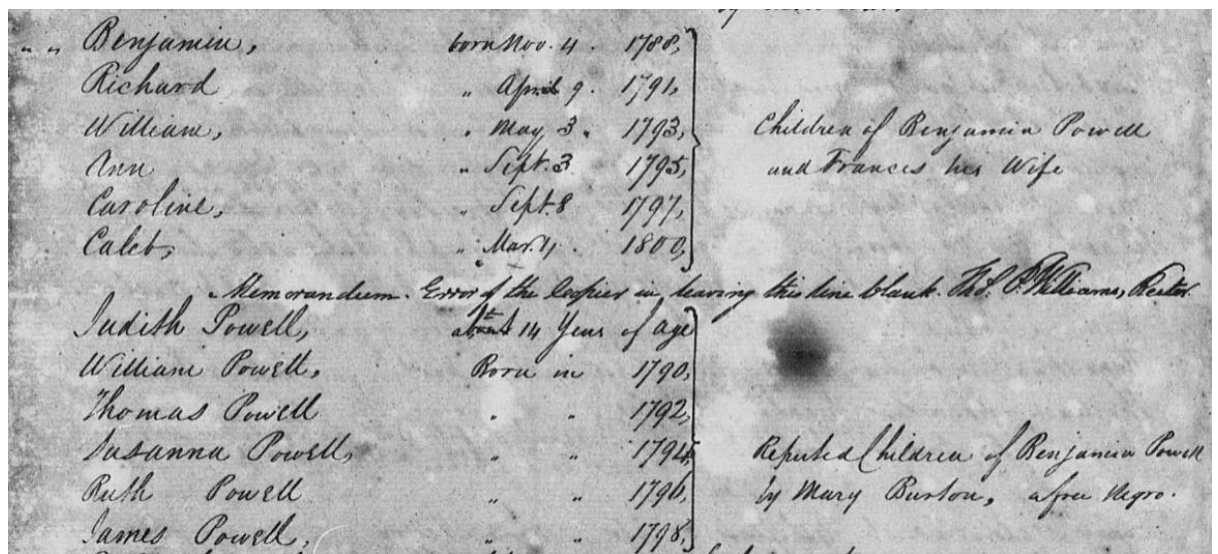 " " Benjamin, born Nov. 4. 1788,
Richard " April 9. 1791,
William, " May 3. 1793, Children of Benjamin Powell
Ann " Sept. 3 1795, and Frances his Wife
Caroline, " Sept. 8 1797,
Caleb, " Mar. 1800,
Memorandum. Error of the Copier in leaving this line blank. Tho. Williams, Rector.
Judith Powell, 14 Years of age
William Powell, Born in 1790,
Thomas Powell " " 1792,
Susanna Powell, " " 1794, Reputed Children of Benjamin Powell
Ruth Powell " " 1796, by Mary Burton, a free Negro.
James Powell, " " 1798,